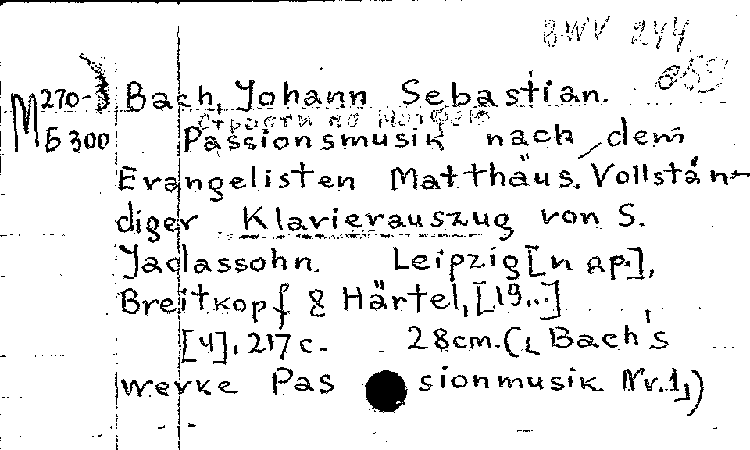 BWV 244
М 270-3 Bach, Johann Sebastian.
Страсти по Матфею
Б 300 Passionsmusik nach dem
Evangelisten Matthäus. Vollstän-
diger Klavierauszug von S.
Jadassohn. Leipzig [u ap.],
Breitkopf & Härtel, [19...]
[4], 217 c. 28 cm. („Bach's
werke Passionmusik Nr. 1„)